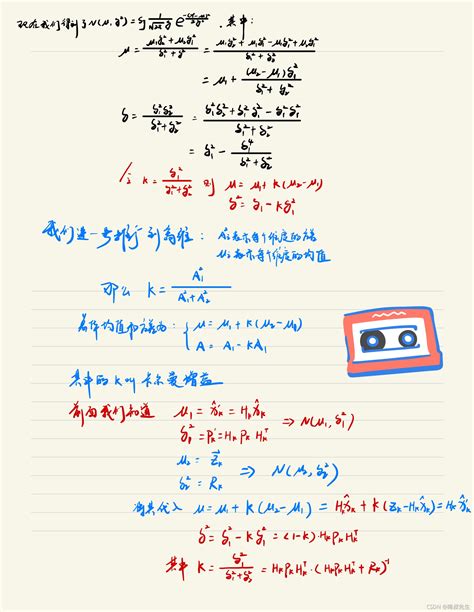 现在我们得到了 N(μ, σ²) = S 1/(√2π σ) e^, 其中:
μ = (μ₁σ₂² + μ₂σ₁²)/(σ₁² + σ₂²) = (μ₁σ₂² + μ₁σ₁² - μ₁σ₁² + μ₂σ₁²)/(σ₁² + σ₂²)
= μ₁ + (μ₂ - μ₁)σ₁²/(σ₁² + σ₂²)
σ = σ₁²σ₂²/(σ₁² + σ₂²) = (σ₁²σ₂² + σ₁²σ₁² - σ₁²σ₁²)/(σ₁² + σ₂²)
= σ₁² - σ₁⁴/(σ₁² + σ₂²)
令 K = σ₁²/(σ₁² + σ₂²) 则 μ = μ₁ + K(μ₂ - μ₁)
σ² = σ₁ - Kσ₁²
我们进一步推广到高维: 表示每个维度的方差
μᵢ表示每个维度的均值
那么 K = A₁²/(A₁² + A₂²)
均值和方差为: { μ = μ₁ + K(μ₂ - μ₁)
A = A₁ - KA₁
其中的 K 卡尔曼增益
前面我们知道 μ₁ = x̂ₖ = Hₖx̂ₖ ⇒ N(μ₁, σ₁²)
σ₁² = Pₖ' = HₖPₖHₖᵀ
μ₂ = Z⃗ₖ ⇒ N(μ₂, σ₂²)
σ₂² = Rₖ
将其代入 μ = μ₁ + K(μ₂ - μ₁) = Hₖx̂ₖ + K(Zₖ - Hₖx̂ₖ) = Hₖx̂ₖ
σ² = σ₁² - Kσ₁² = (1-K)·HₖPₖHₖᵀ
其中 K = σ₁²/(σ₁² + σ₂²) = HₖPₖHₖᵀ·(HₖPₖHₖᵀ + Rₖ)⁻¹